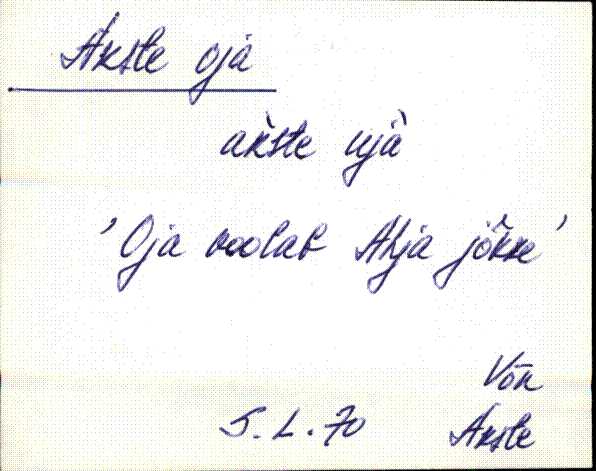 Akste oja
akste ujà
'Oja voolab Ahja jõkke'
Võn
5. L. 70 Akste